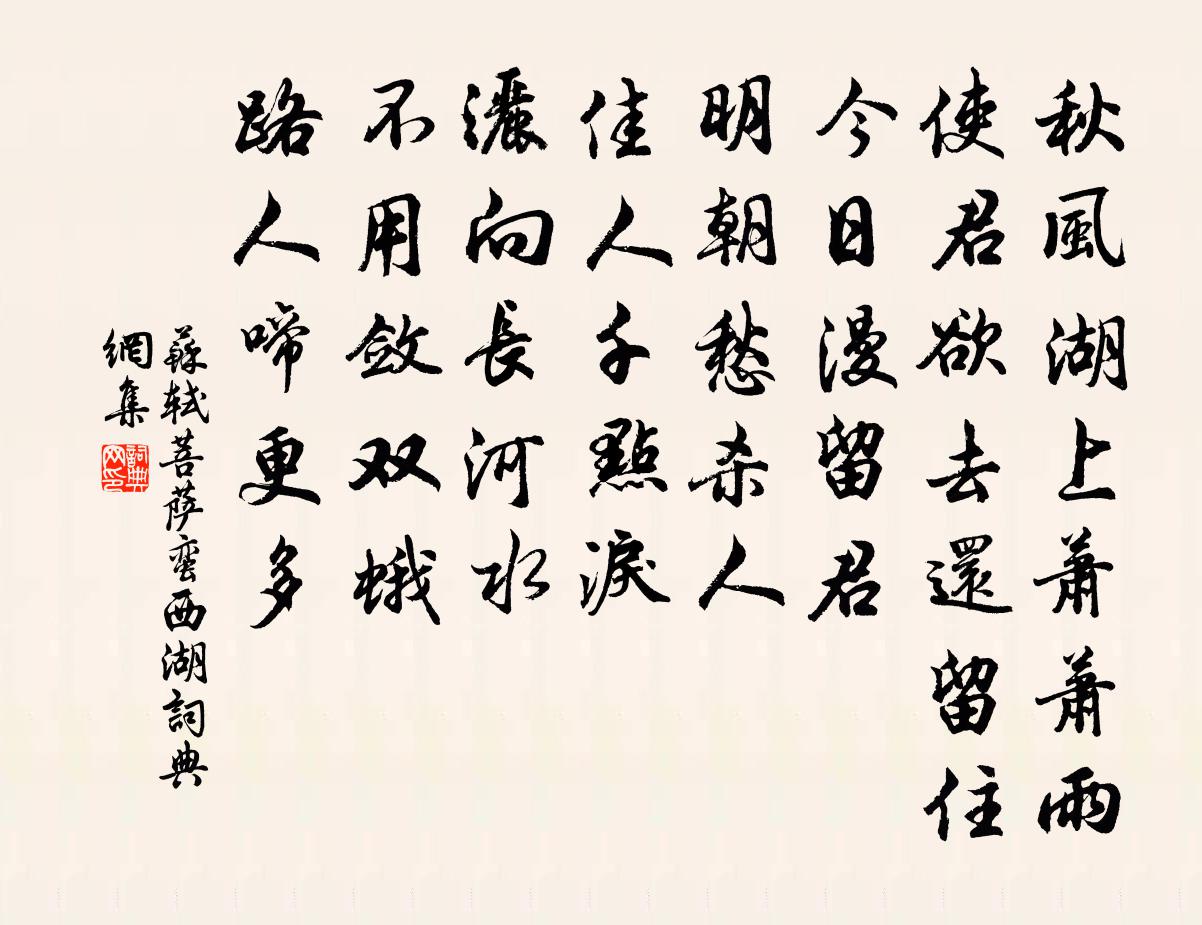 秋風湖上蕭蕭雨
使君欲去還留住
今日漫留君
明朝愁杀人
佳人千點淚
灑向長河水
不用斂双蛾
路人啼更多
蘇軾菩萨蛮西湖詞典
網集
詞典
网印